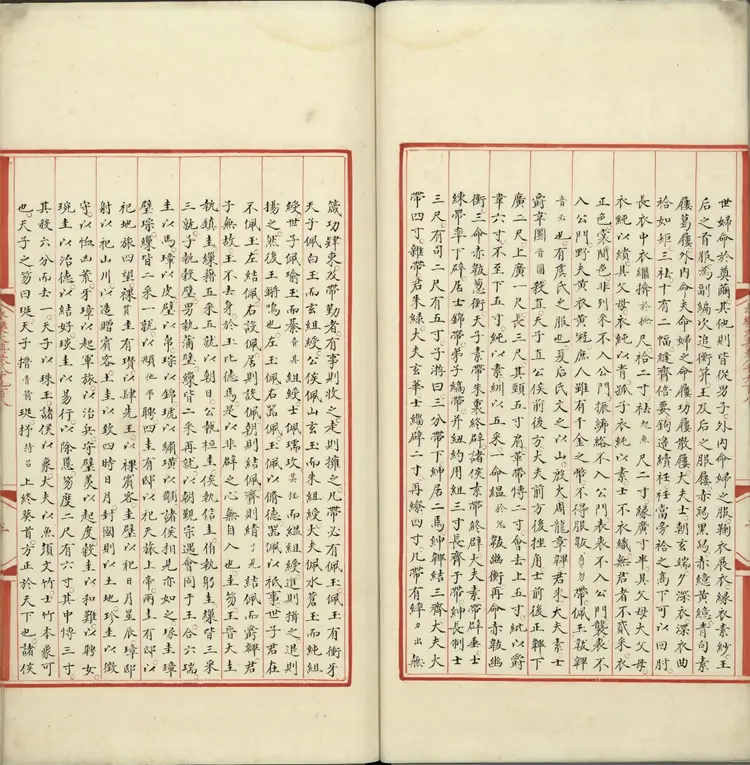 世婦命於奠繭其他則皆從男子外內命婦之服鞠衣展衣緣衣素紗王
后之首服為副編次追衡笄王及后之服屨赤舄黑舄赤繶黃繶青句素
屨葛屨外內命夫命婦之命屨功屨散屨大夫士朝玄端夕深衣深衣曲
袷如矩三袪十有二幅縫齊倍要鉤邊續衽衽當旁袷之高下可以回肘
長衣中衣繼揜於檢尺袷二寸袪尺二寸緣廣寸半具父母大父母
衣純以繢具父母衣純以青孤子衣純以素士不衣織無君者不貳采衣
正色裳間色非列采不入公門振絺綌不入公門表裘不入公門襲裘不
入公門野夫黃衣黃冠庶人雖有千金之幣不得服韍音勿帶佩玉韍韠
音必也有虞氏之服也夏后氏文之以山殷火周龍章韠君朱大夫素士
爵韋圜音圓殺直天子直公侯前後方大夫前方後挫角士前後正韠下
廣二尺上廣一尺長三尺其頸五寸肩革帶博二寸會去上五寸紕以爵
韋六寸不至下五寸純以素紃以五采一命縕韍幽衡再命赤韍幽
衡三命赤韍蔥衡天子素帶朱裏終辟諸侯素帶終辟大夫素帶辟垂士
練帶率下辟居士錦帶弟子縞帶并紐約用組三寸長齊于帶紳長制士
三尺有司二尺有五寸子游曰三分帶下紳居二焉紳韠結三齊大夫大
帶四寸雜帶君朱綠大夫玄華士緇辟二寸再繚四寸凡帶有繂力出無
箴功肆束及帶勤者有事則收之走則擁之凡帶必有佩玉佩玉有衝牙
天子佩白玉而玄組綬公侯佩山玄玉而朱組綬大夫佩水蒼玉而純組
綬世子佩瑜玉而綦音其組綬士佩瓀玟而縕組綬進則揖之退則
揚之然後玉鏘鳴也左玉佩右器佩玉佩以脩德器佩以祗事世子君在
不佩玉左結佩右設佩居則設佩朝則結佩齊則綪結佩而爵韠君
子無故玉不去身於玉比德焉是以非辟之心無自入也圭笏王晉大圭
執鎮圭繅藉五采五就以朝日公執桓圭侯執信圭伯執躬圭繅皆三采
三就子執穀璧男執蒲璧繅皆二采再就以朝覲宗遇會同于王合六瑞
圭以馬璋以皮璧以帛琮以錦琥以繡璜以黼諸侯相見亦如之瑑圭璋
璧琮繅皆二采一就以頫聘四圭有邸以祀天旅上帝兩圭有邸以
祀地旅四望祼圭有瓚以肆先王以祼賓客圭璧以祀日月星辰璋邸
射以祀山川以造贈賓客土圭以致四時日月封國則以土地珍圭以徵
守以恤凶荒牙璋以起軍旅以治兵守璧羨以起度穀圭以和難以聘女
琬圭以治德以結好琰圭以易行以除慝笏度二尺有六寸其中博三寸
其殺六分而去一天子以珠玉諸侯以象大夫以魚須文竹士竹本象可
也天子之笏曰珽天子搢音晉珽杼待呂上終葵首方正於天下也諸侯